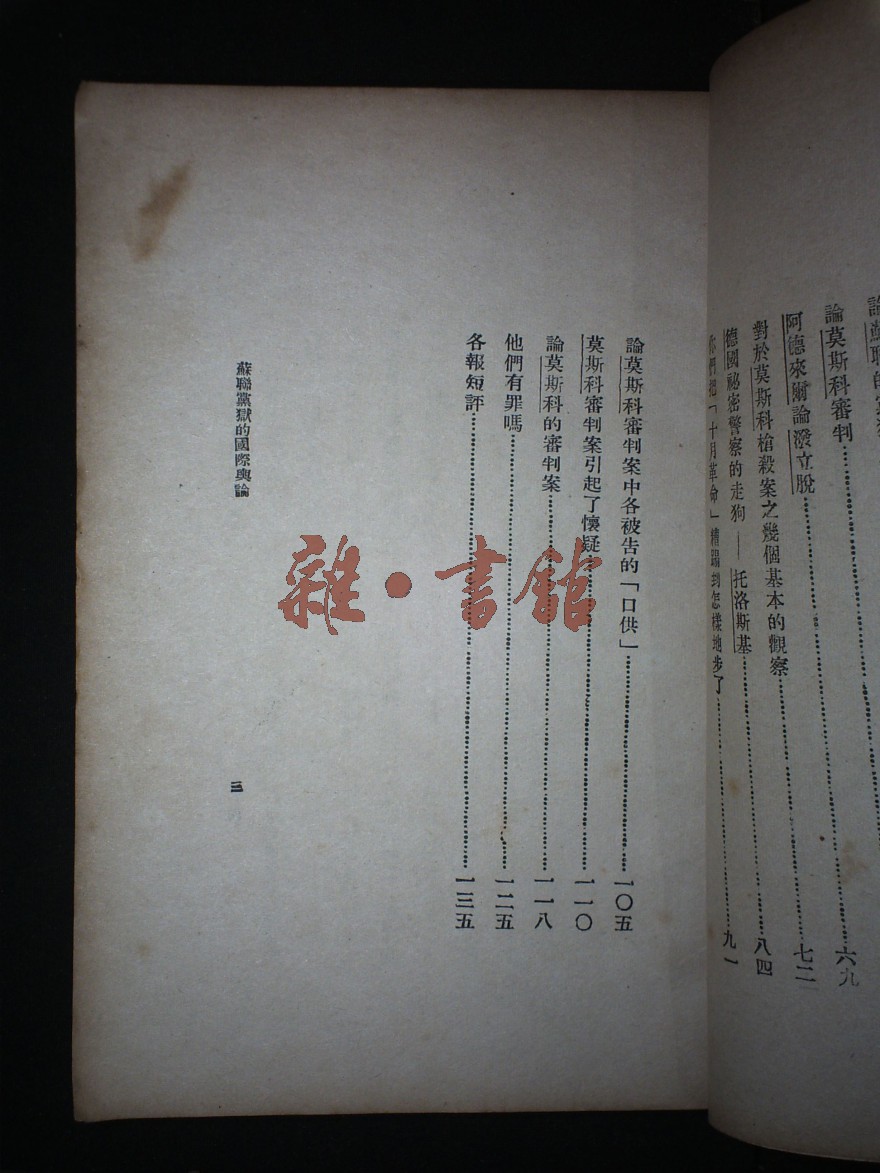 論莫斯科審判……六九
阿德來爾論潑立脫……七二
對於莫斯科槍殺案之幾個基本的觀察……八四
德國祕密警察的走狗——托洛斯基
你們把「十月革命」糟蹋到怎樣地步了……九一
論莫斯科審判案中各被告的「口供」……一〇五
莫斯科審判案引起了懷疑……一一〇
論莫斯科的審判案……一一八
他們有罪嗎……一二五
各報短評……一三五
蘇聯黨獄的國際輿論
三
雜·書館